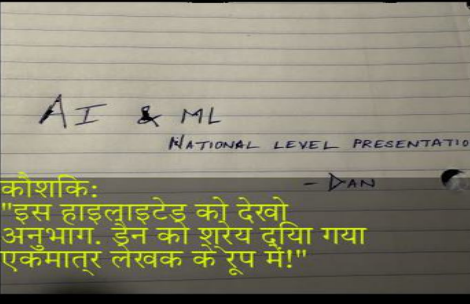 AI & ML
NATIONAL LEVEL PRESENTATIO
- DAN
कौशकि:
"इस हाइलाइटेड को देखो
अनुभाग. डैन को श्रेय दयिा गया
एकमात्र लेखक के रूप में!"